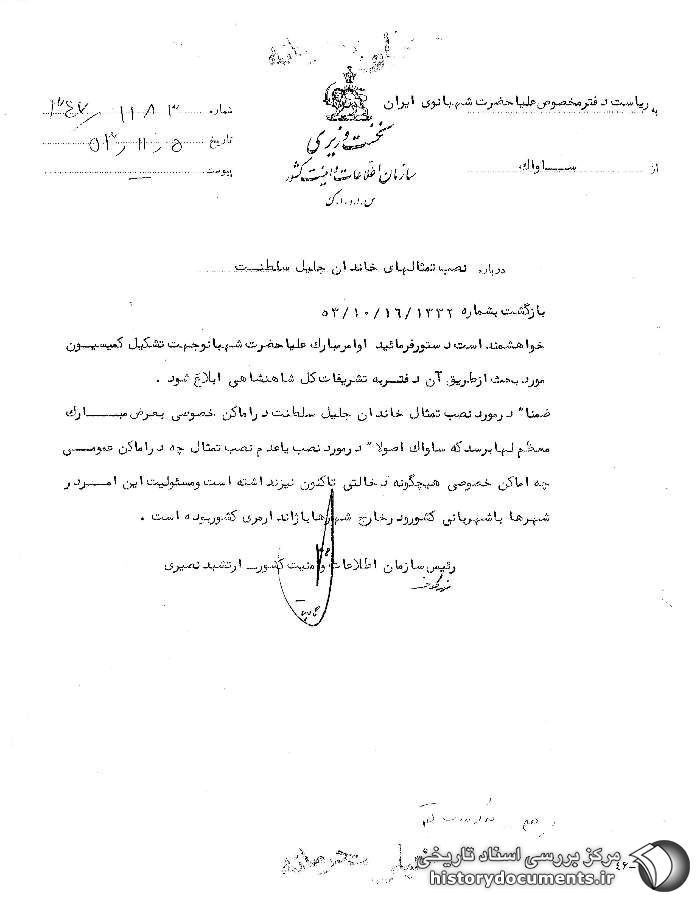 خیلی محرمانه
به ریاست دفتر مخصوص علیاحضرت شهبانوی ایران
از ساواك
نخست وزیری
سازمان اطلاعات و امنیت کشور
س.ا.و.ا.ک
شماره
تاریخ ۵۳/۱۱/۵
پیوست
درباره نصب تمثالهای خاندان جلیل سلطنت
بازگشت بشماره ۱۳۳۲/۱۶/۱۰/۵۳
خواهشمند است دستور فرمائید اوامر مبارك علیاحضرت شهبانو جهت تشکیل کمیسیون
مورد بحث از طریق آن دفتر به تشریفات کل شاهنشاهی ابلاغ شود .
ضمنا" در مورد نصب تمثال خاندان جلیل سلطنت در اماکن خصوصی بعرض مبارك
معظم لها برسد که ساواك اصولا" در مورد نصب یا عدم نصب تمثال چه در اماکن عمومی
چه اماکن خصوصی هیچگونه دخالتی تاکنون نیز نداشته است و مسئولیت این امر در
شهرها با شهربانی کشور و در خارج شهرها با ژاندارمری کشور بوده است .
رئیس سازمان اطلاعات و امنیت کشور ـ ارتشبد نصیری
خیلی محرمانه
مرکز بررسی اسناد تاریخی
historydocuments.ir